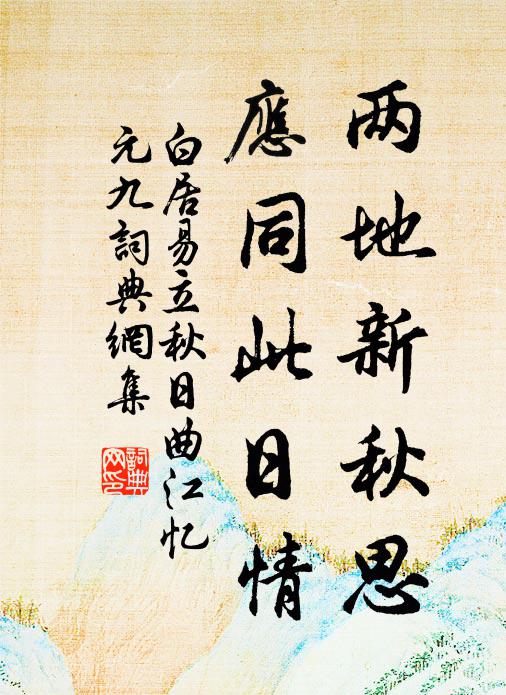 两地新秋思
應同此日情
白居易立秋日曲江忆
元九詞典網集
詞典
网印